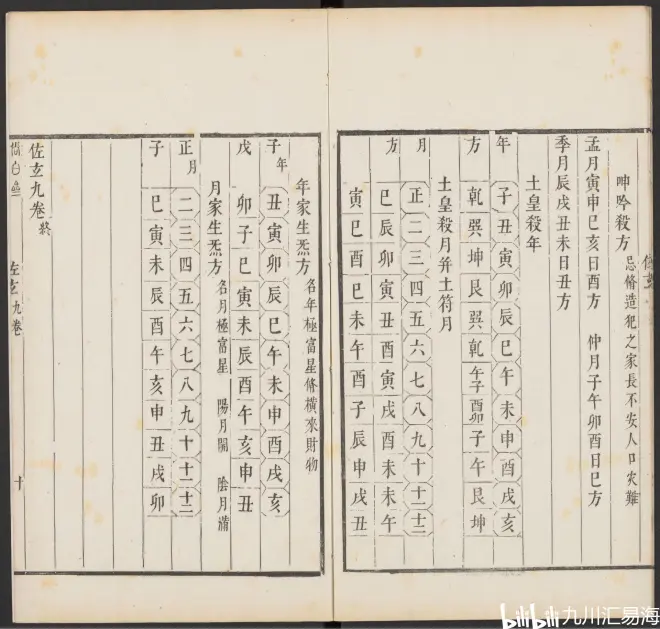 呻吟殺方 忌脩造犯之家長不安人口灾難
孟月寅申巳亥日酉方 仲月子午卯酉日巳方
季月辰戌丑未日丑方
土皇殺年
年 子丑寅卯辰巳午未申酉戌亥
方 乾巽坤艮巽乾午子酉卯子午艮坤
土皇殺月并土符月
月 正二三四五六七八九十十一十二
方 巳辰卯寅丑酉寅戌酉未未午
寅巳酉巳未午酉子辰申戌丑
年家生炁方 名年極富星脩橫來財物
子年 丑寅卯辰巳午未申酉戌亥
戌 卯子巳寅未辰酉午亥申丑
月家生炁方 名月極富星 陽月開 陰月滿
正月 二三四五六七八九十十一十二
子 巳寅未辰酉午亥申丑戌卯
佐玄九卷終
佐玄九卷 十
bilibili 九川汇易海